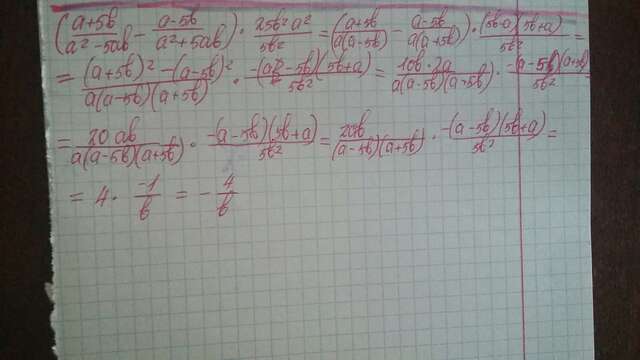 (a+5b/a²-5ab - a-5b/a²+5ab) · 25b²-a²/5b² = (a+5b/a(a-5b) - a-5b/a(a+5b)) · (5b-a)(5b+a)/5b² =
= (a+5b)²-(a-5b)²/a(a-5b)(a+5b) · -(a-5b)(5b+a)/5b² = 10b·2a/a(a-5b)(a+5b) · -(a-5b)(a+5b)/5b² =
= 20ab/a(a-5b)(a+5b) · -(a-5b)(5b+a)/5b² = 20b/(a-5b)(a+5b) · -(a-5b)(5b+a)/5b² =
= 4 · -1/b = - 4/b